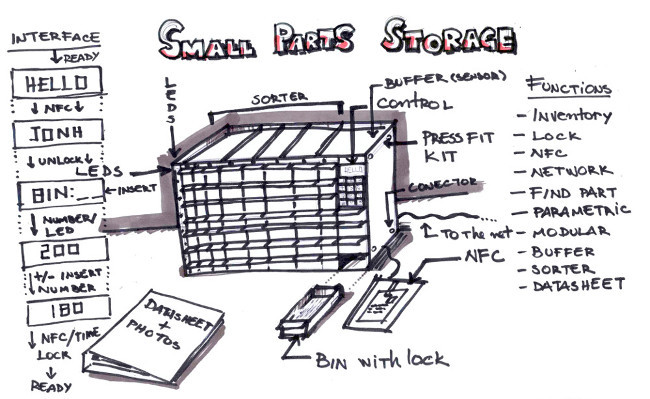 SMALL PARTS STORAGE
INTERFACE
READY
HELLO
NFC
JONH
UNLOCK
BIN:__
INSERT
NUMBER/
LED
200
+/- INSERT
NUMBER
180
NFC/TIME
LOCK
READY
LEDS
LEDS
SORTER
BUFFER (SENSOR)
CONTROL
HELLO
PRESSFIT
KIT
CONECTOR
TO THE net
NFC
BIN WITH LOCK
DATASHEET
+
PHOTOS
FUNCTIONS
- INVENTORY
- LOCK
- NFC
- NETWORK
- FIND PART
- PARAMETRIC
- MODULAR
- BUFFER
- SORTER
- DATASHEET